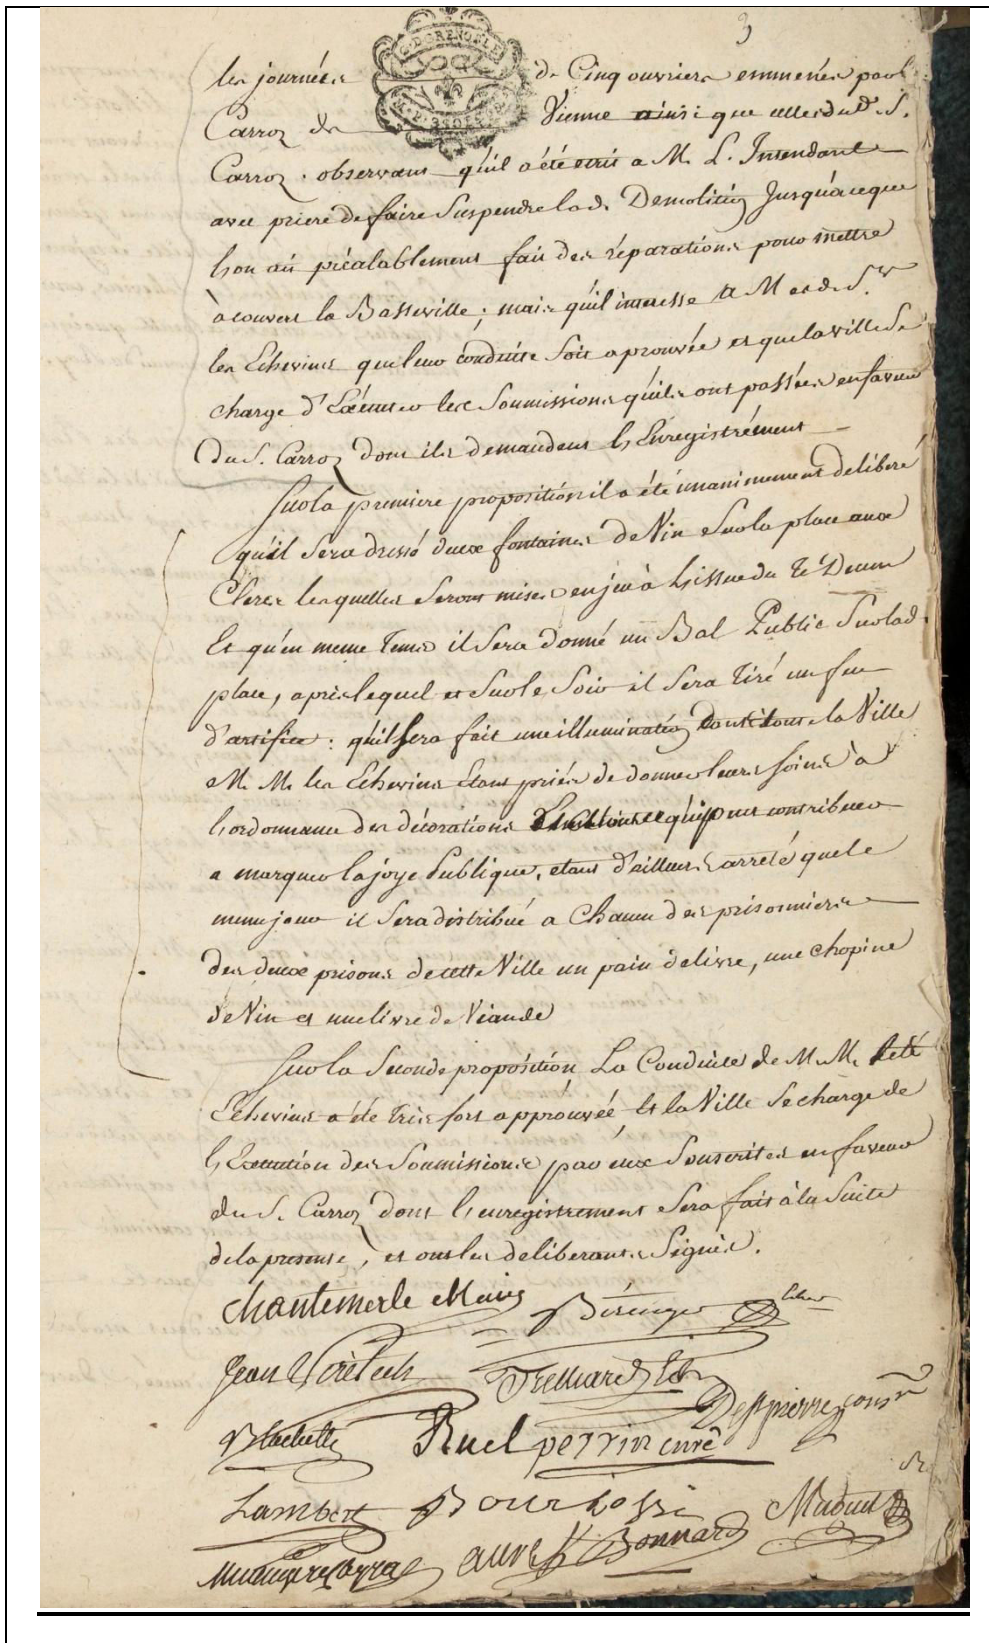 3
G. D. GRENOBLE
les journées de Cinq ouvriers emmenés par le
Carroz de Vienne ainsi que celles dud. S.
Carroz. observans qu'il a été ecrit a M. L. Intendant
avec priere de faire Suspendre lad. Demolition Jusqu'a ce que
lon ait préalablement fait des réparations pour mettre
à couvert la Basseville; mais qu'il interesse a M
les Echevins que leur conduite Soit aprouvée et que la ville Se
charge d'Exécuter les Soumissions qu'ils ont passées en faveur
du S. Carroz dont ils demandent l'Enregistrément
Sur la premiere proposition il a été unanimement deliberé
qu'il Sera dressé deux fontaines de Vin Sur la place aux
Clercs lesquelles Seront mises en jeu à l'issue du Te Deum
Et qu'en meme Tems il Sera donné un Bal Public Sur lad.
place, après lequel et Sur le Soir il Sera Tiré un feu
d'artifice: qu'il Sera fait une illumination dans toute la Ville
M. M. les Echevins Etant priés de donner leurs soins à
l'ordonnance des décorations et qui peut contribuer
a marquer la joye Publique, etant d'ailleurs arreté que le
meme jour il Sera distribué a Chacun des prisonniers
des deux prisons de cette Ville un pain de livre, une chopine
de Vin et une livre de Viande
Sur la Seconde proposition La Conduite de M. M. les
Echevins a été Très fort approuvée, Et la Ville Se charge de
l'Execution des Soumissions par eux Souscrites en faveur
du S. Carroz dont l'enregistrement Sera fait à la Suite
de la presente, et ont les deliberants Signés.
Chantemerle Maire Bérenger Echev
Jean
Treillard
Blachette Ruel perrin curé
Lambert Bour
Bonnard